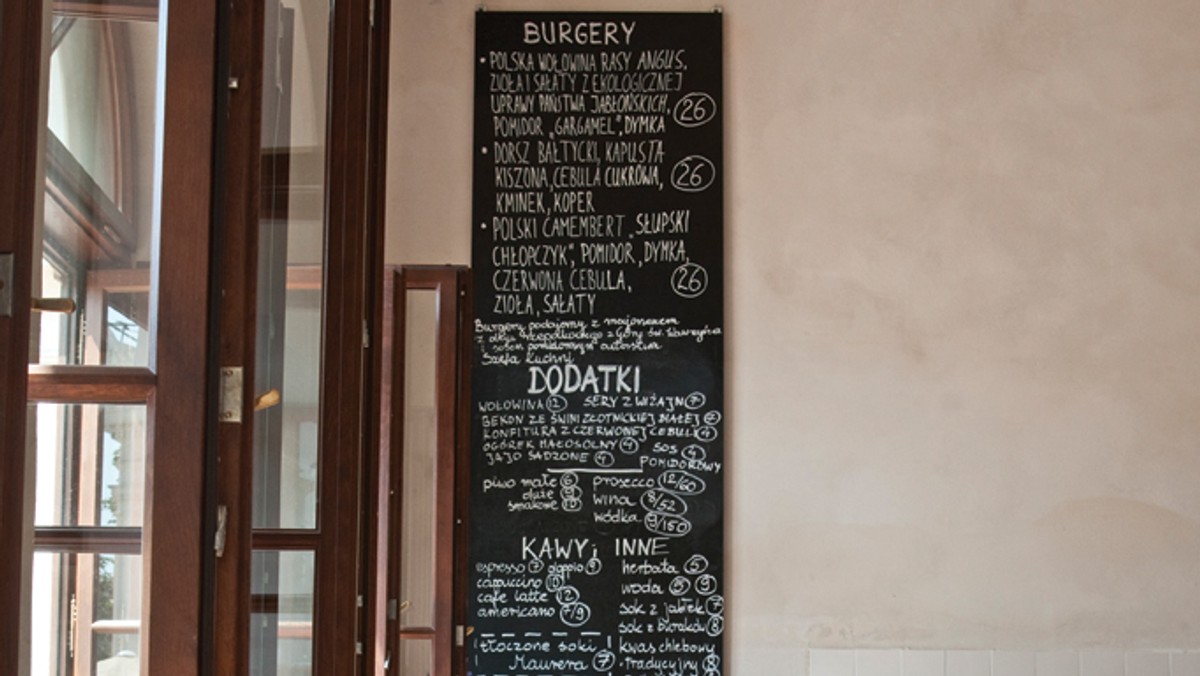 BURGERY
• POLSKA WOŁOWINA RASY ANGUS,
ZIOŁA I SAŁATY Z EKOLOGICZNEJ
UPRAWY PAŃSTWA JABŁOŃSKICH, 26
POMIDOR „GARGAMEL", DYMKA
• DORSZ BAŁTYCKI, KAPUSTA
KISZONA, CEBULA CUKROWA, 26
KMINEK, KOPER
• POLSKI CAMEMBERT „SŁUPSKI
CHŁOPCZYK", POMIDOR, DYMKA,
CZERWONA CEBULA, 26
ZIOŁA, SAŁATY
Burgery podajemy z majonezem
z oleju rzepakowego z Góry św. Wawrzyńca
i sosem pomidorowym autorstwa
Szefa Kuchni
DODATKI
WOŁOWINA 12 SERY Z WIŻAJN 7
BEKON ZE ŚWINI ZŁOTNICKIEJ BIAŁEJ 7
KONFITURA Z CZERWONEJ CEBULI 4
OGÓREK MAŁOSOLNY 4 SOS 4
JAJO SADZONE 4 POMIDOROWY
piwo małe 6 prosecco 12/60
duże 9 wina 8/52
smakowe 10 wódka 9/150
KAWY i INNE
espresso 7 doppio 9 herbata 5
cappuccino 10 woda 5 9
cafe latte 12 sok z jabłek 7
americano 7/9 sok z buraków 8
tłoczone soki kwas chlebowy
Maurera 7 • tradycyjny 8